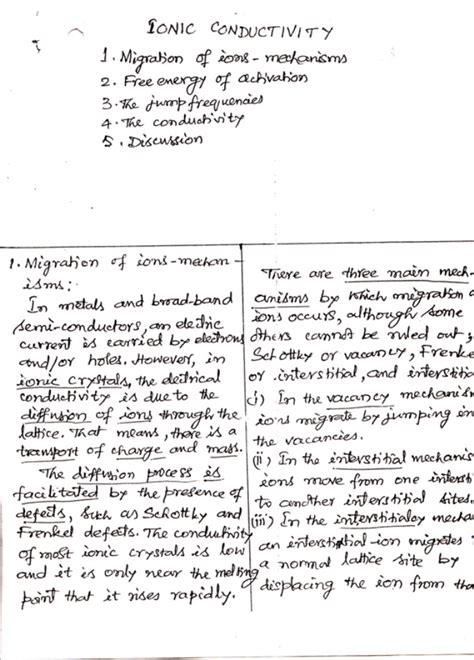 IONIC CONDUCTIVITY
1. Migration of ions - mechanisms
2. Free energy of activation
3. The jump frequencies
4. The conductivity
5. Discussion
1. Migration of ions-mechan-
isms:
In metals and broad-band
semi-conductors, an electric
current is carried by electrons
and/or holes. However, in
ionic crystals, the electrical
conductivity is due to the
diffusion of ions through the
lattice. That means, there is a
transport of charge and mass.
The diffusion process is
facilitated by the presence of
defects, such as Schottky and
Frenkel defects. The conductivity
of most ionic crystals is low
and it is only near the melting
point that it rises rapidly.
There are three main mech-
anisms by which migration
ions occurs, although some
others cannot be ruled out;
Schottky or vacancy, Frenke
or interstitial, and interstitia
(i) In the vacancy mechanism
ions migrate by jumping in
the vacancies.
(ii) In the interstitial mechanis
ions move from one intersti
to another interstitial sites.
(iii) In the interstitialcy mecha
an interstitial-ion migrates
a normal lattice site by
displacing the ion from tha